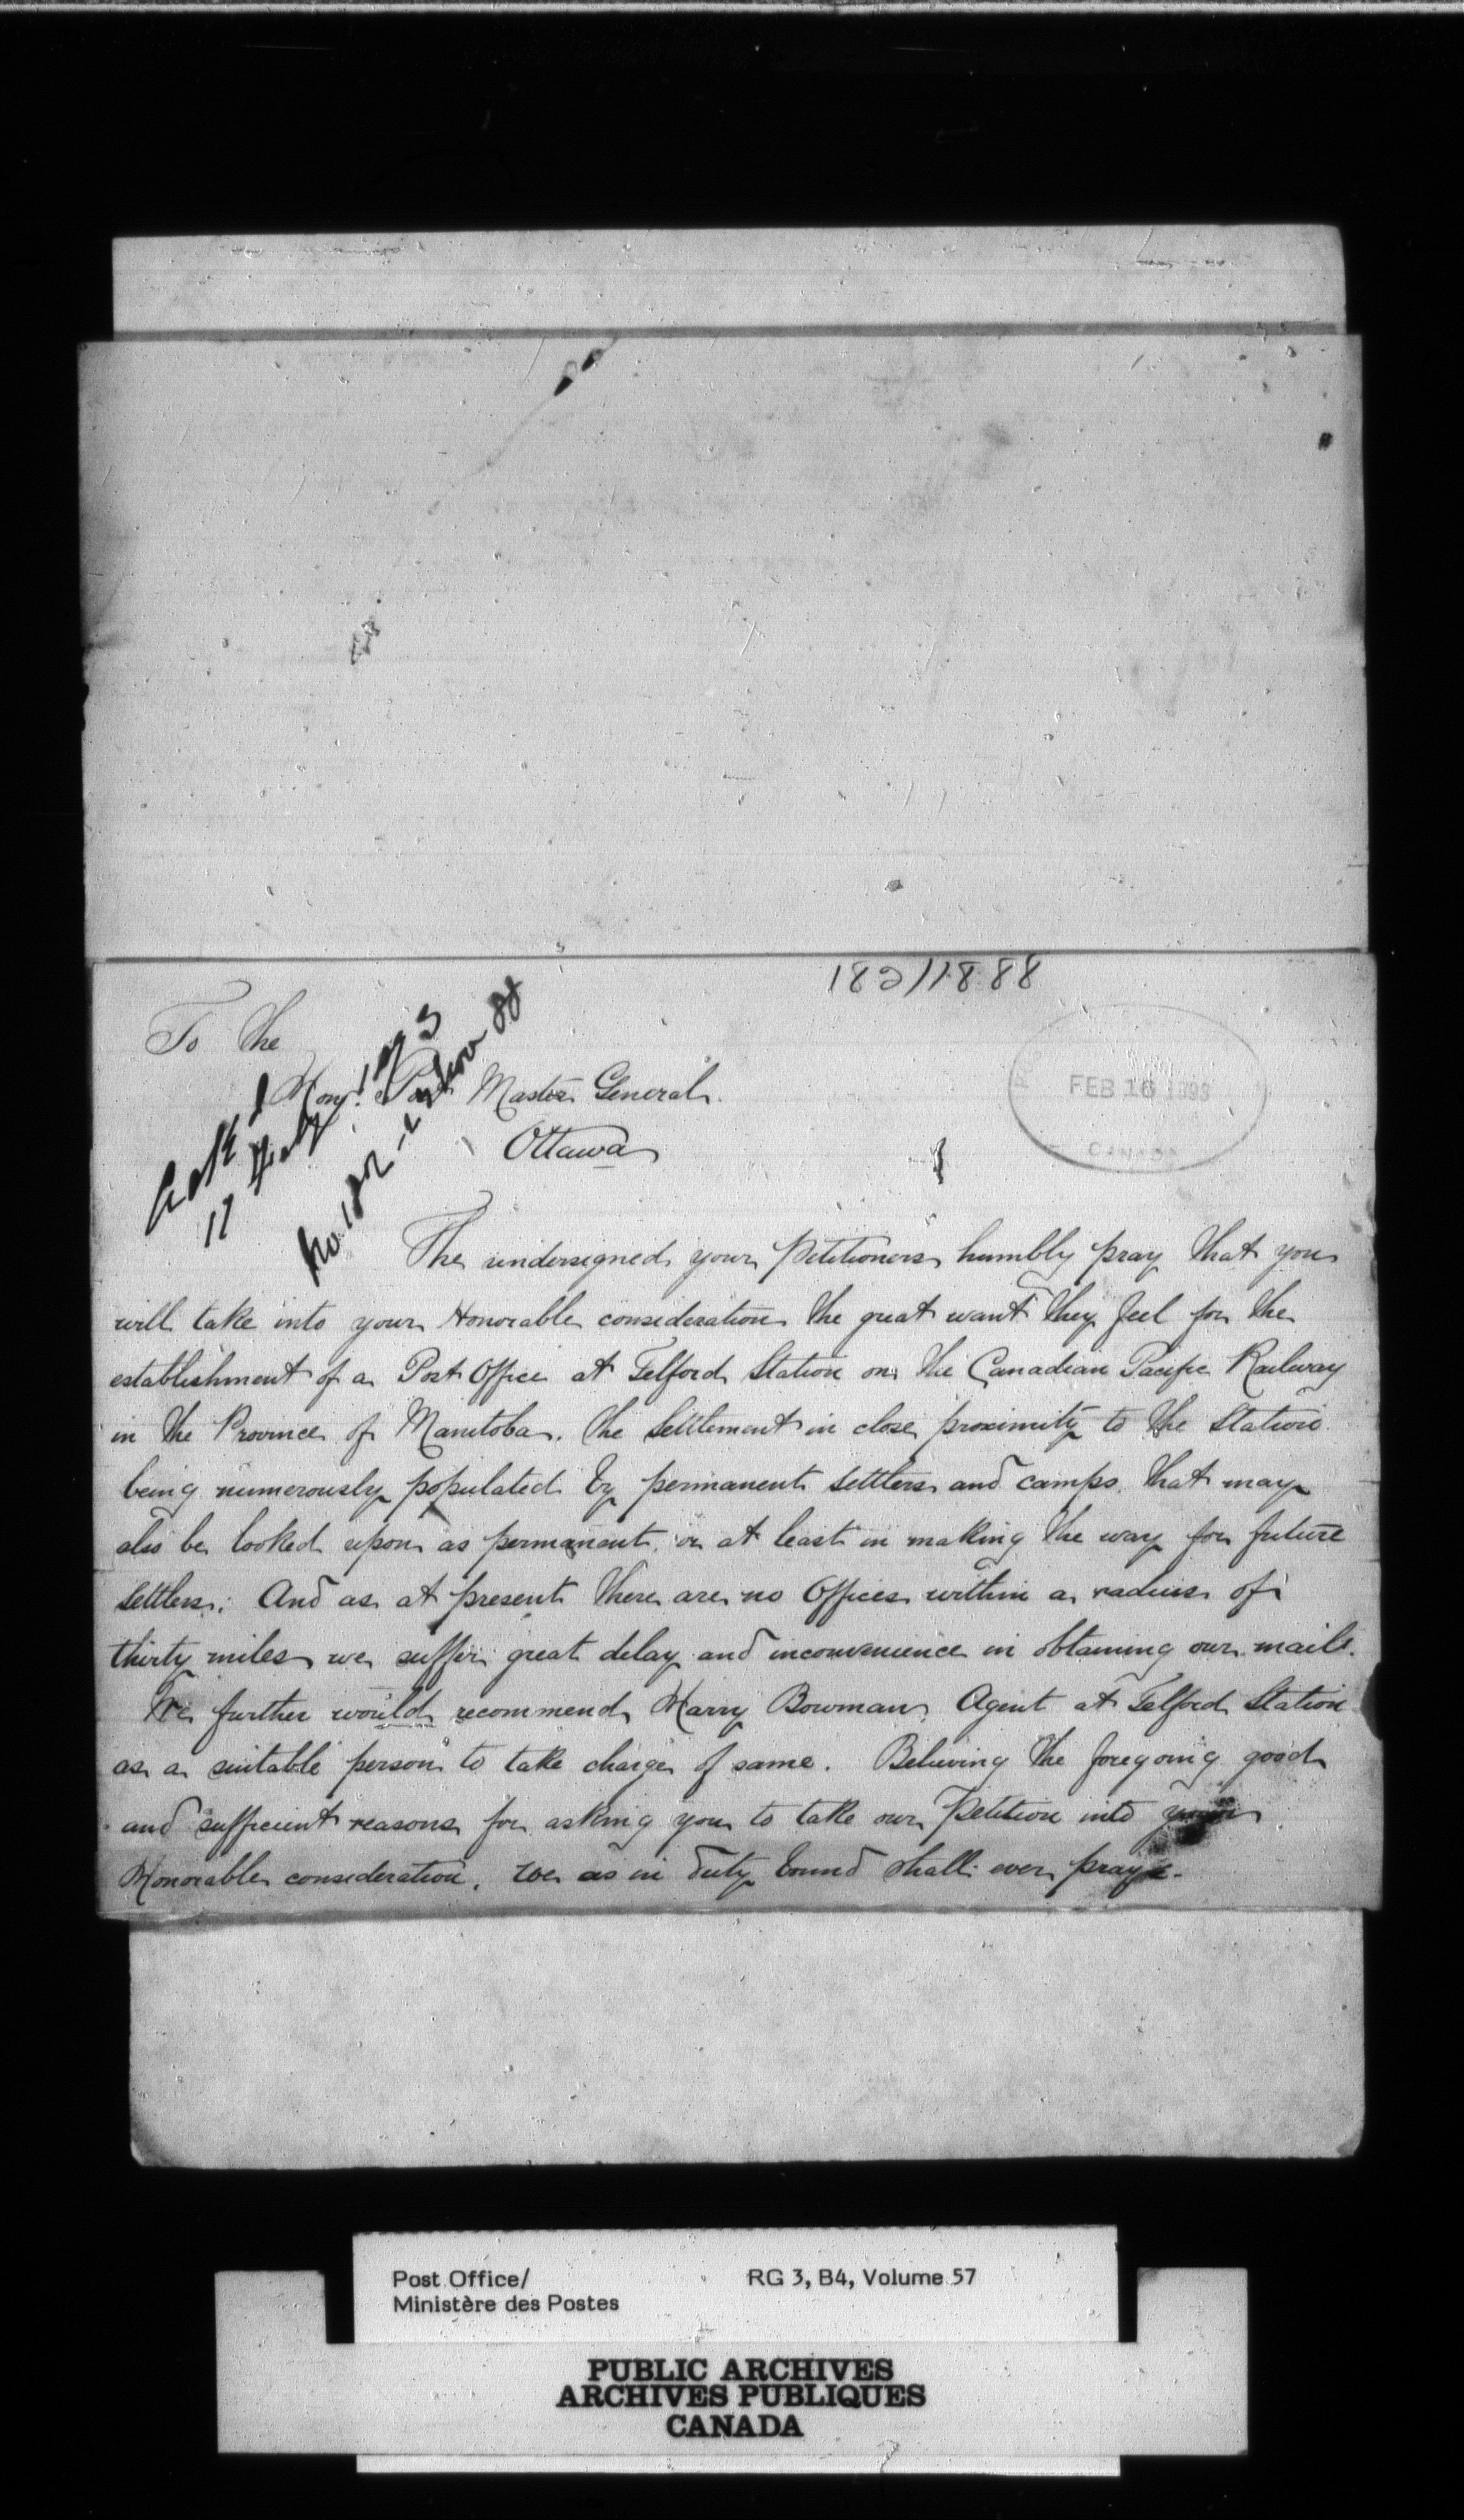 182/1888
To the
Hony. Post Master General.
Ottawa
FEB 16 1893
CANADA
Ack'd
17 Feby 1893
No. 182
88
The undersigned your Petitioners humbly pray that you
will take into your Honorable consideration the great want they feel for the
establishment of a Post Office at Telford Station on the Canadian Pacific Railway
in the Province of Manitoba. The Settlement in close proximity to the Station
being numerously populated by permanent settlers and camps. that may
also be looked upon as permanent, or at least in making the way for future
settlers: And as at present there are no Offices within a radius of
thirty miles we suffer great delay and inconvenience in obtaining our mails.
We further would recommend Harry Bowman, Agent at Telford Station
as a suitable person to take charge of same. Believing the foregoing good
and sufficient reasons for asking you to take our Petition into your
Honorable consideration, we as in duty bound shall ever pray.
Post Office/ RG 3, B4, Volume 57
Ministère des Postes
PUBLIC ARCHIVES
ARCHIVES PUBLIQUES
CANADA